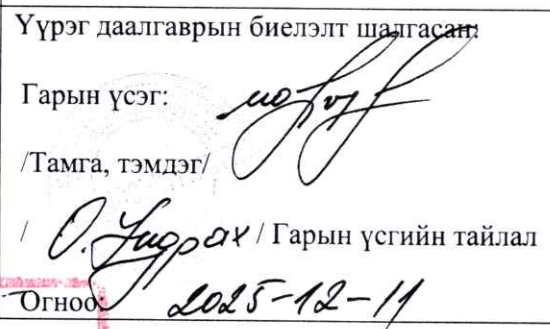 Үүрэг даалгаврын биелэлт шалгасан:
Гарын үсэг:
/Тамга, тэмдэг/
/ О. Ундрах / Гарын үсгийн тайлал
Огноо: 2025-12-11